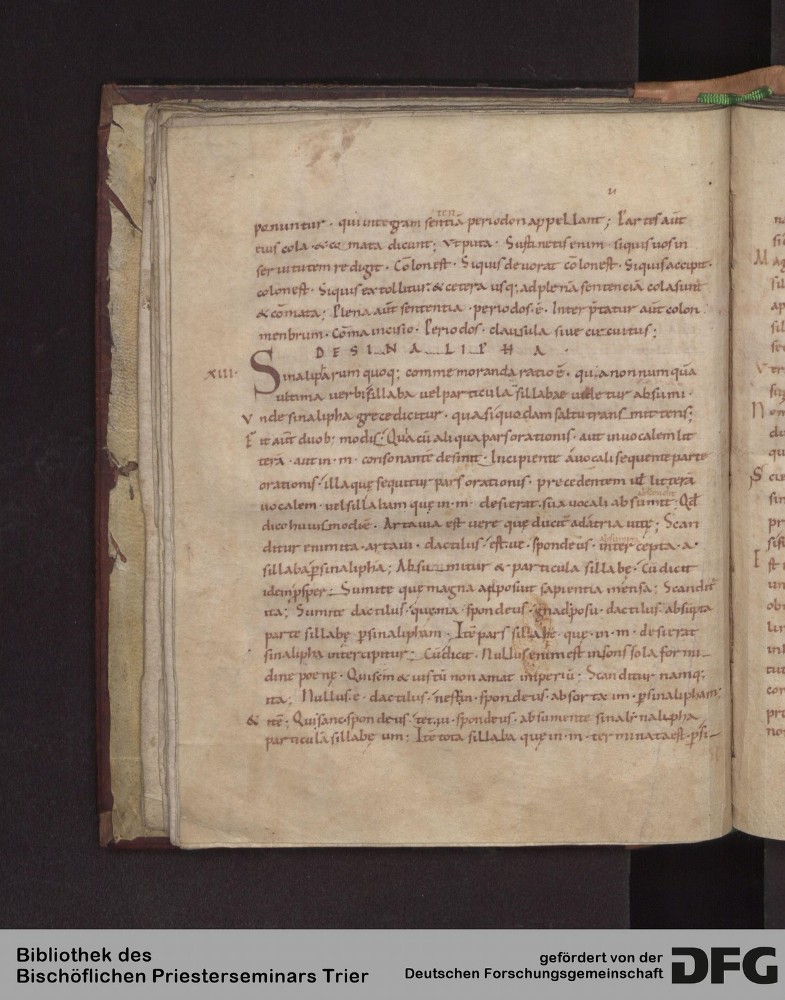 ponuntur · qui integram sentiā periodon appellant ; Partes aut̄
eius cola · & comata dicunt ; Vt puta · Sustinetis enim · siquis uos in
seruitutem redigit · Colon est · Siquis deuorat colon est · Siquis accipit ·
colon est · Siquis extollitur · & cetera usq; ad plenā sentenciā cola sunt
& cōmata ; Plena aut̄ sententia · periodos · ē · Inter p̄tatur aut̄ colon
menbrum · Cōma incisio · Periodos · clausula siue circuitus ;
DE SINALIPHA ·
XIII · Sinaliparum quoq; commemoranda ratio ē · quia non numquā
ultima uerbi sillaba uel particula sillabae uidetur absumi ·
Vnde sinalipha grece dicitur · quasi quodam saltu transmittens ;
Fit aut̄ duob; modis · Qua cū aliqua pars orationis · aut in uocalem lit
tera · aut in · m · consonantē desinit · Incipiente a uocali sequente parte
orationis · illa quę sequitur pars orationis · precedentem ul litterā
uocalem · uel sillabam quę in · m · desierat · sua uocali absumit ; Qd̄
dico huiusmodi ē · Artauia est uere quę ducit ad atria uitę ; Scan
ditur enim ita · artaui · dactilus · est · ue · spondeus · intercepta · a ·
sillaba p̄ sinalipha ; Absumitur & particula sillabę · Cū dicit
idem p̄sper · Sumite quę magna apposuit sapientia mensa ; Scandit̄
ita ; Sumite dactilus · quęma spondeus · gnadposu · dactilus absūpta
parte sillabę p̄ sinalipham · Itē pars sillabę · quę · in · m · desierat
sinalipha intercipitur · Cū dicit · Nullus enim est insons sola formi
dine poenę · Qui scm̄ & iustū non amat imperiū ; Scanditur namq;
ita ; Nullus · e · dactilus · nestin · spondeus · absorta im · p̄ sinalipham ;
& itē ; Quisanc · spondeus · tet · iu · spondeus · absumente sinalinalipha
particulā sillabę um ; Itē tota sillaba quę in · m · terminata est · p̄ si
Bibliothek des
Bischöflichen Priesterseminars Trier
gefördert von der
Deutschen Forschungsgemeinschaft
DFG